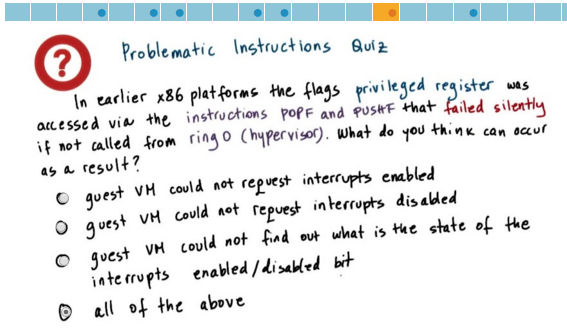 ?
Problematic Instructions Quiz
In earlier x86 platforms the flags privileged register was
accessed via the instructions POPF and PUSHF that failed silently
if not called from ring 0 (hypervisor). What do you think can occur
as a result?
guest VM could not request interrupts enabled
guest VM could not request interrupts disabled
guest VM could not find out what is the state of the
interrupts enabled/disabled bit
all of the above